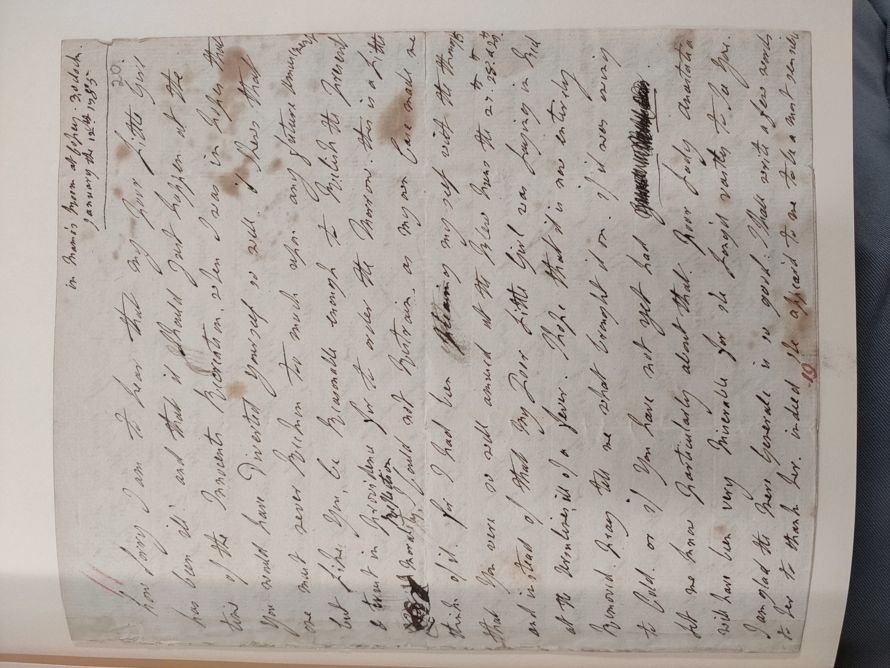 in Mama's Room at half past 3 o'clock.
January the 12th 1785
20
how sorry I am to hear that my poor little Girl
has been ill. and that it should just happen at the
time of the Innocents Recreation. when I was in hopes that
you would have Diverted yourself so well. I see that
one must never Reckon too much upon any future
but like you, be Reasonable enough to Relish the present
& trust in Providence for to order the Morrow. this is a little
Morality Reflection I could not Restrain. as my own Case made me
think of it. for I had been my self with the thought
that you were so well amused at the the 27. 28. & 29th
and instead of that my Poor Little Girl was laying in bed
at the ill of a fever. I hope that it is now entirely
Removed. Pray tell me what brought it on. if it was owing
to Cold. or if you have not yet had
let me know particularly about that. Poor Lady Anastasia
will have been very Miserable for she long'd vastly to see you.
I am glad the Mere Generale is so good. I shall write a few words
to her to thank her. indeed she appear'd to me to be a most sensible
19